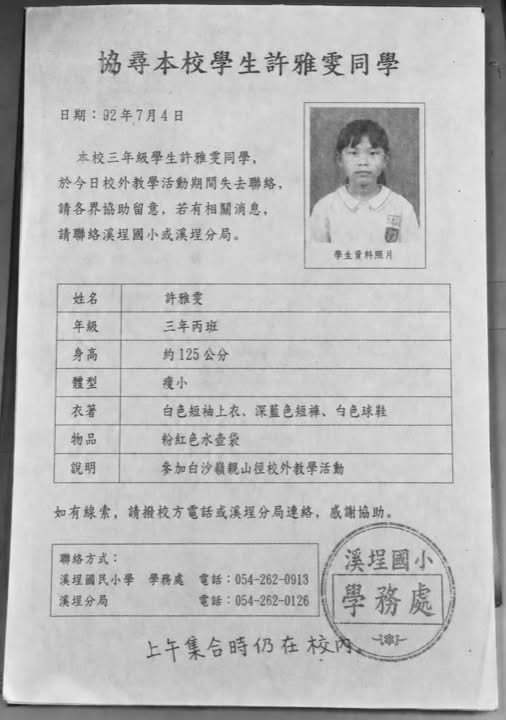 協尋本校學生許雅雯同學
日期：92年7月4日
本校三年級學生許雅雯同學，
於今日校外教學活動期間失去聯絡，
請各界協助留意，若有相關消息，
請聯絡溪埕國小或溪埕分局。
學生資料照片
姓名 許雅雯
年級 三年丙班
身高 約125公分
體型 瘦小
衣著 白色短袖上衣、深藍色短褲、白色球鞋
物品 粉紅色水壺袋
說明 參加白沙嶺親山徑校外教學活動
如有線索，請撥校方電話或溪埕分局連絡，感謝協助。
聯絡方式：
溪埕國民小學 學務處 電話：054-262-0913
溪埕分局 電話：054-262-0126
溪埕國小
學務處
上午集合時仍在校內。